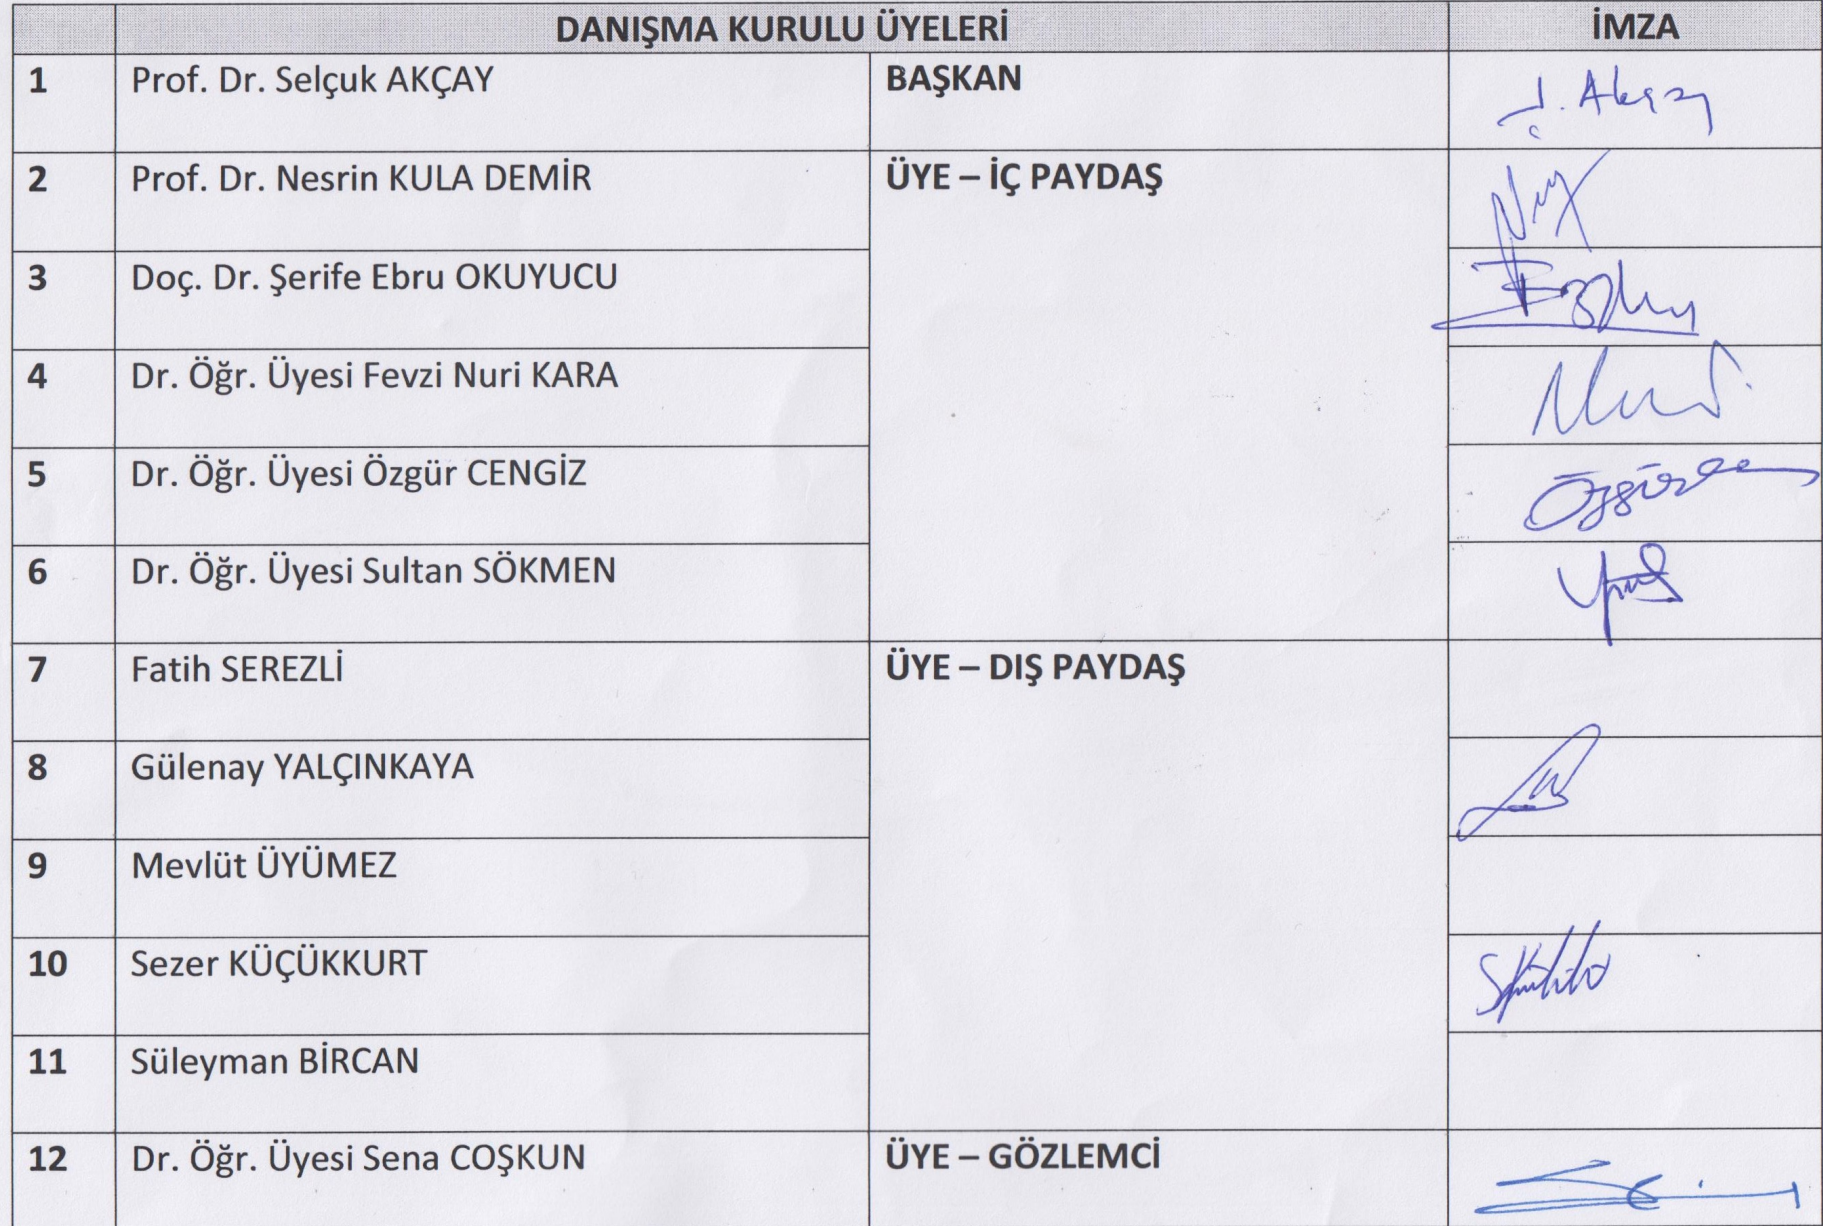 DANIŞMA KURULU ÜYELERİ İMZA
1 Prof. Dr. Selçuk AKÇAY BAŞKAN Ş. Akçay
2 Prof. Dr. Nesrin KULA DEMİR ÜYE – İÇ PAYDAŞ
3 Doç. Dr. Şerife Ebru OKUYUCU
4 Dr. Öğr. Üyesi Fevzi Nuri KARA
5 Dr. Öğr. Üyesi Özgür CENGİZ
6 Dr. Öğr. Üyesi Sultan SÖKMEN
7 Fatih SEREZLİ ÜYE – DIŞ PAYDAŞ
8 Gülenay YALÇINKAYA
9 Mevlüt ÜYÜMEZ
10 Sezer KÜÇÜKKURT
11 Süleyman BİRCAN
12 Dr. Öğr. Üyesi Sena COŞKUN ÜYE – GÖZLEMCİ